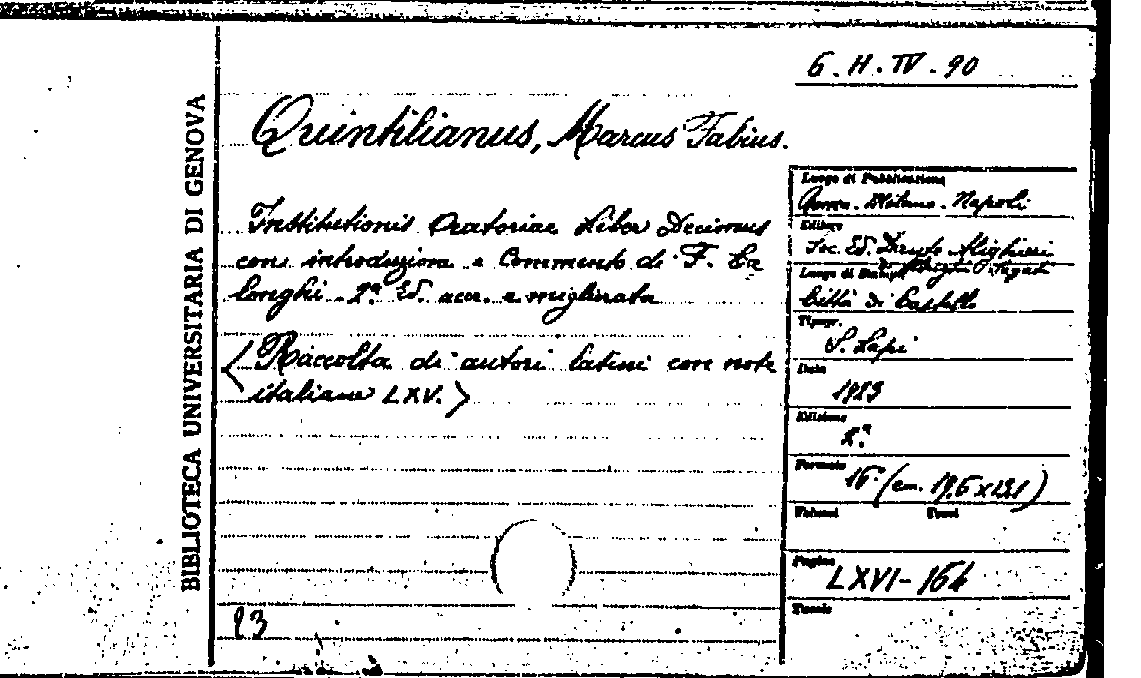 6. H. IV. 90
BIBLIOTECA UNIVERSITARIA DI GENOVA
Quintilianus, Marcus Fabius.
Institutionis Oratoriae Liber Decimus
con introduzione e Commento di F. Ca
longhi - 2ª Ed. accr. e migliorata
<Raccolta di autori latini con note
italiane LXV.>
Luogo di Pubblicazione
Roma. Milano. Napoli
Editore
Soc. Ed. Dante Alighieri
di
Luogo di Stampa
Città di Castello
Tipogr.
S. Lapi
Data
Edizione
2ª
Formato
16° (cm.
Volumi Tomi
Pagine
LXVI-164
Tavole